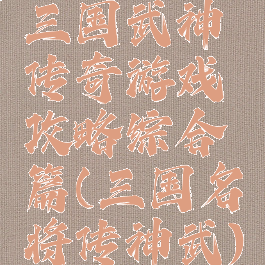 三国武神
传奇游戏
攻略综合
篇(三国名
将传神武)